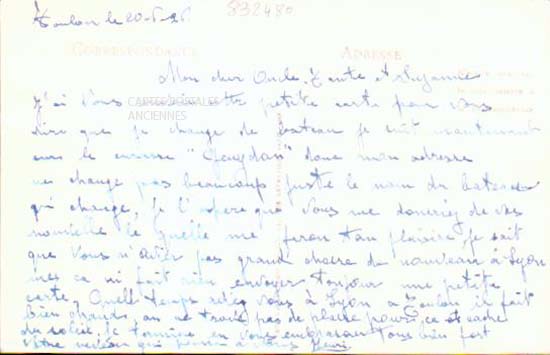 Toulon le 20-6-26
832480
CORRESPONDANCE
ADRESSE
Mon cher Oncle Tante et
J'ai vous cette petite carte pour vous
CARTES POSTALES
ANCIENNES
dire que je change de bateau je suit maintenant
sure le "Gueydon" donc mon adresse
ne change pas beaucoup juste le nom du bateau
qui change, Je l'espere que vous me donneriez de vos
nouvelle le quelle me feron tan plaisire Je sait
que vous n'avier pas grand chosse de nouveau à Lyon
mes ca ni fait rien envoyer toujour une petite
carte, Quelle temps vous à Lyon a Toulon il fait
bien chaud, on ne trouve pas de place pour ce cacher
du soleil, Je termine en vous embrasan tous bien fort
Votre neveu qui pense a vous Henri